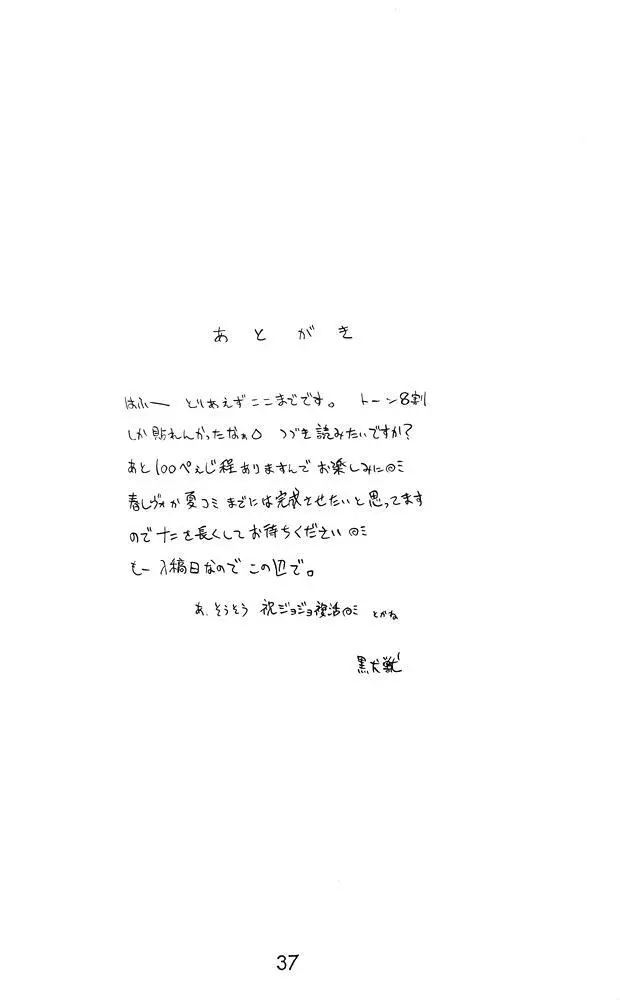 あとがき
はふー とりあえずここまでです。 トーン8割
しか貼れんかったなぁ つづき読みたいですか?
あと100ぺぇじ程ありますんでお楽しみに
春レヴォか夏コミまでには完成させたいと思ってます
ので ナニを長くしてお待ちください
もー入稿日なのでこの辺で。
あ、そうそう 祝ジョジョ復活 とかね
黒犬獣
37